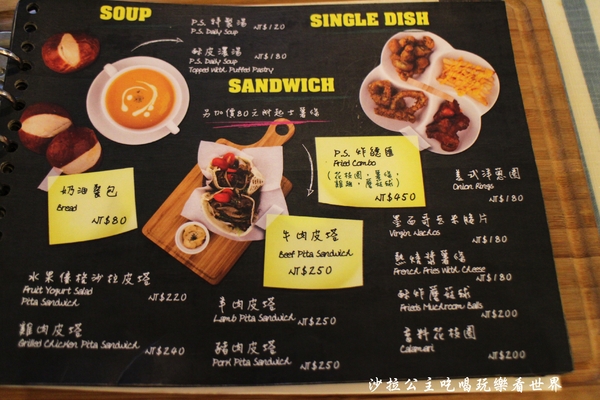 SOUP
P.S. 特製湯
P.S. Daily Soup
NT$120
酥皮濃湯
P.S. Daily Soup
Topped With Puffed Pastry
NT$180
SINGLE DISH
SANDWICH
另加價80元附起士薯條
奶油餐包
Bread
NT$80
P.S. 炸總匯
Fried Combo
(花枝圈、薯條、
雞柳、蘑菇球)
NT$450
美式洋蔥圈
Onion Rings
NT$180
墨西哥玉米脆片
Virgin Nachos
NT$180
牛肉皮塔
Beef Pita Sandwich
NT$250
熱情醬薯條
French Fries With Cheese
NT$180
酥炸蘑菇球
Frieds Mudroom Balls
NT$200
香料花枝圈
Calamari
NT$200
水果優格沙拉皮塔
Fruit Yogurt Salad
Pita Sandwich
NT$220
羊肉皮塔
Lamb Pita Sandwich
NT$250
雞肉皮塔
Grilled Chicken Pita Sandwich
NT$240
豬肉皮塔
Pork Pita Sandwich
NT$250
沙拉公主吃喝玩樂看世界